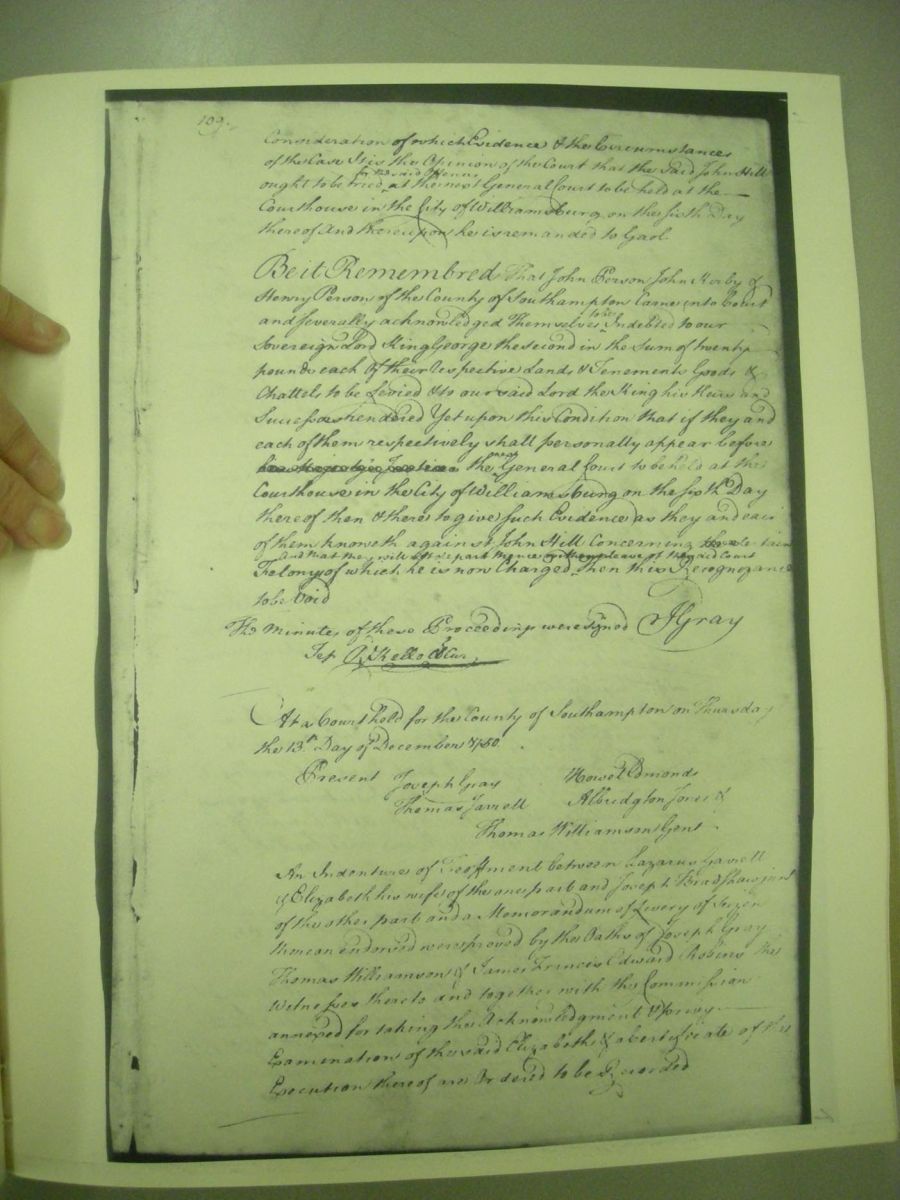 109.
Consideration of which Evidence & the Circumstances
of the Case It is the Opinion of the Court that the said John Hill
for the said Offence
ought to be tried at the next General Court to be held at the
Courthouse in the City of Williamsburg on the sixth Day
thereof And thereupon he is remanded to Gaol.
Be it Remembred That John Person John Kerby &
Henry Person of the County of Southampton Came into Court
and severally acknowledged Themselves to be Indebted to our
Sovereign Lord King George the second in the Sum of twenty
pounds each Of their respective Lands & Tenements Goods &
Chattels to be Levied & to our said Lord the King his Heirs and
Successors rendered Yet upon this Condition that if they and
each of them respectively shall personally appear before
the next General Court to be held at the
Courthouse in the City of Williamsburg on the sixth Day
thereof then & there to give such Evidence as they and each
of them knoweth against John Hill Concerning
And that they will not depart thence without the leave of the said Court
Felony of which he is now Charged Then this Recognizance
to be Void
The Minutes of these Proceedings were Signed JGray
Test Kello Cl Cur
At a Court held for the County of Southampton on Thursday
the 13th Day of December 1750.
Present Joseph Gray Howel Edmonds
Thomas Jarrell Albridgton Jones &
Thomas Williamson Gent
An Indenture of Feoffment between Lazarus Garrell
& Elizabeth his wife of the one part and Joseph Bradshaw junr
of the other part and a Memorandum of Livery of Seizen
thereon endorsed were proved by the Oaths of Joseph Gray
Thomas Williamson & James Francis Edward Robins the
Witnesses thereto and together with the Commission
annexed for taking the Acknowledgment & privy
Examination of the said Elizabeth & a Certificate of the
Execution thereof are Ordered to be Recorded